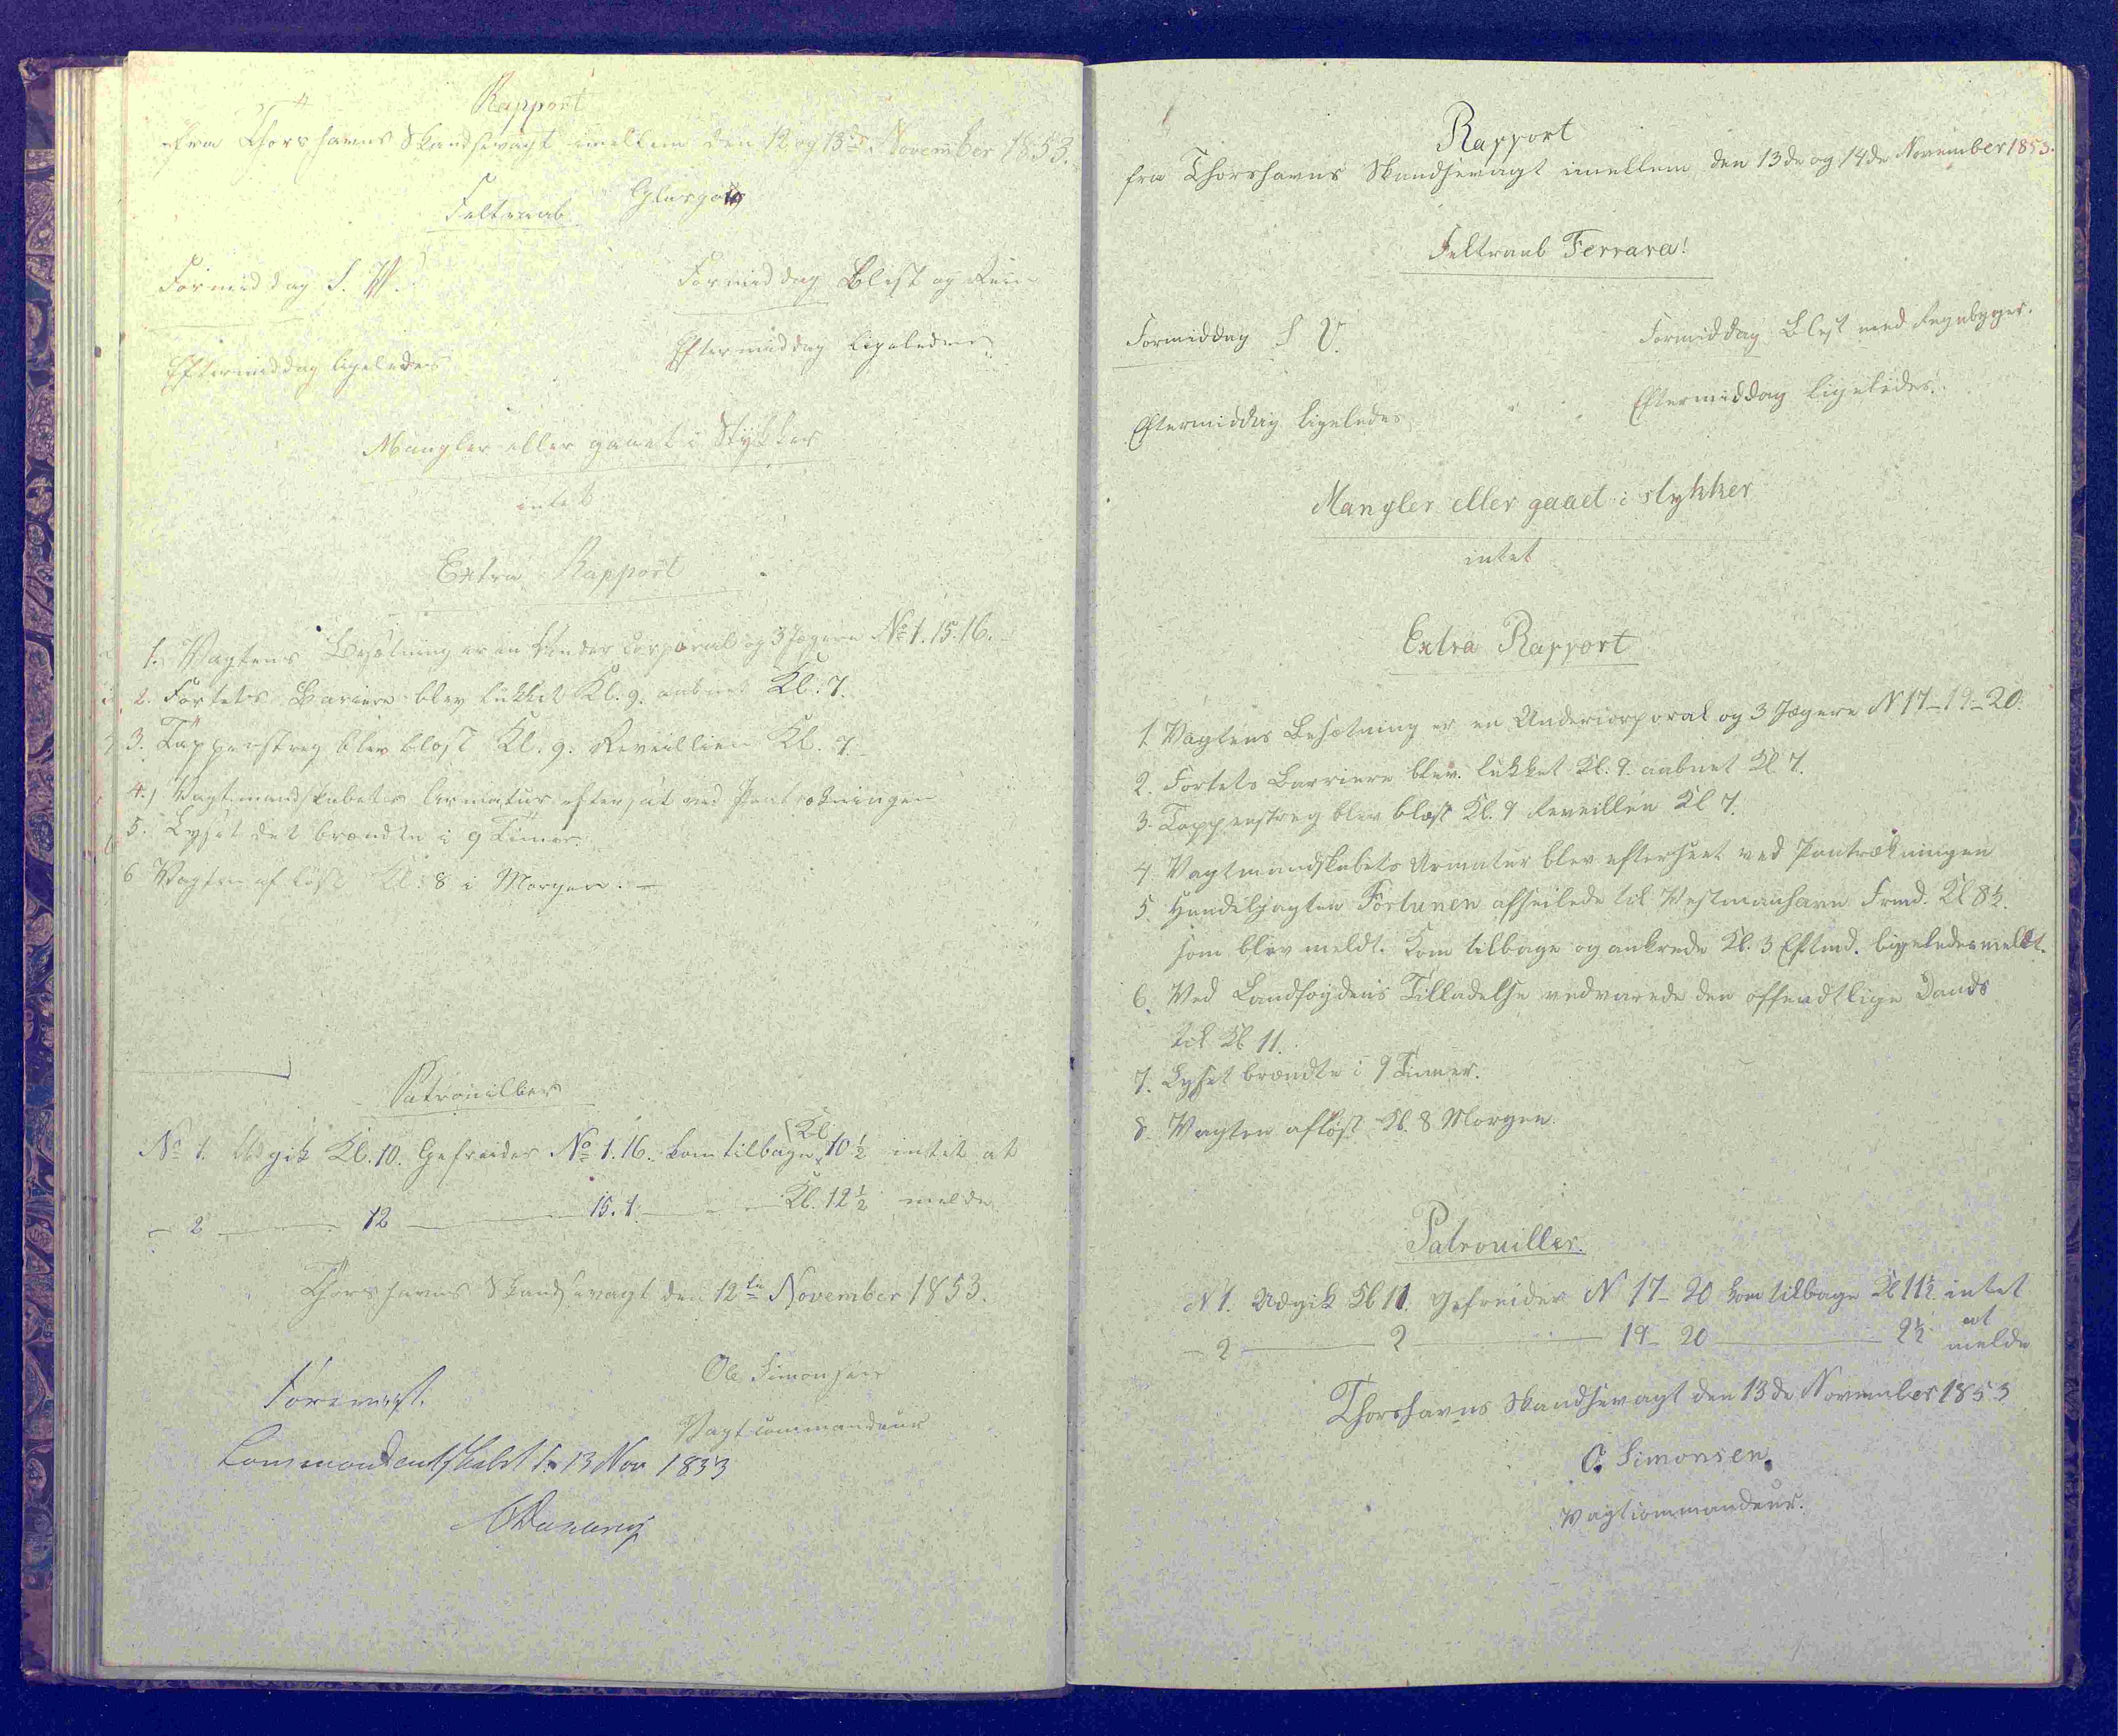 Rapport
fra Thorshavns Skandsevagt imellem den 12 og 13de November 1853.
Feltraab Glasgow
Formiddag S. W.
Formiddag Blæst og Rein
Eftermiddag ligeledes
Eftermiddag ligeledes
Mangler eller gaaet i Stykker
intet
Extra Rapport
1. Vagtens Besætning er en Under Corporal og 3 Jægere No 1. 15. 16.
2. Fortets Bariere blev lukket Kl. 9. aabnet Kl. 7.
3. Tappenstreg blev blæst Kl. 9. Reveillien Kl. 7.
4. Vagtmandskabets Armatur efterset ved Paatrækningen
5. Lyset det brændte i 9 Timer.
6 Vagten afløst Kl. 8 i Morgen.
Patrouiller
No 1. Udgik Kl. 10. Gefreider No 1. 16. kom tilbage Kl 10½ intet at
- 2 — 12 — 15. 1. — Kl. 12½ melde
Thorshavns Skandsevagt den 12te November 1853.
Ole Simonsen
Vagtcommandeur
Forevist.
Commandantskabet d. 13 Nov 1853
Rapport
fra Thorshavns Skandsevagt imellem den 13de og 14de November 1853.
Feltraab Ferrara!
Formiddag S V.
Formiddag Blæst med Regnbyger.
Eftermiddag ligeledes
Eftermiddag ligeledes.
Mangler eller gaaet i stykker
intet
Extra Rapport
1. Vagtens Besætning er en Undercorporal og 3 Jægere N 17 - 19 - 20.
2. Fortets Barriere blev lukket Kl. 9. aabnet Kl 7.
3. Tappenstreg blev blæst Kl. 9 Reveillén Kl 7.
4 Vagtmandskabets Armatur blev efterseet ved Paatrækningen
5. Handeljagten Fortunen afseilede til Vestmanhavn Frmd. Kl 8½.
som blev meldt. Kom tilbage og ankrede Kl. 3 Eftmd. ligeledes meldt.
6. Ved Landfogdens Tilladelse vedvarede den offendtlige Dands
til Kl 11.
7. Lyset brændte i 9 Timer.
8. Vagten afløst Kl. 8 Morgen.
Patrouiller.
N 1. Udgik Kl 11. Gefreider N 17 - 20 kom tilbage Kl 11½ intet
at
- 2 — 2 — 19 - 20 — 2½ melde
Thorshavns Skandsevagt den 13de November 1853
O. Simonsen.
Vagtcommandeur.